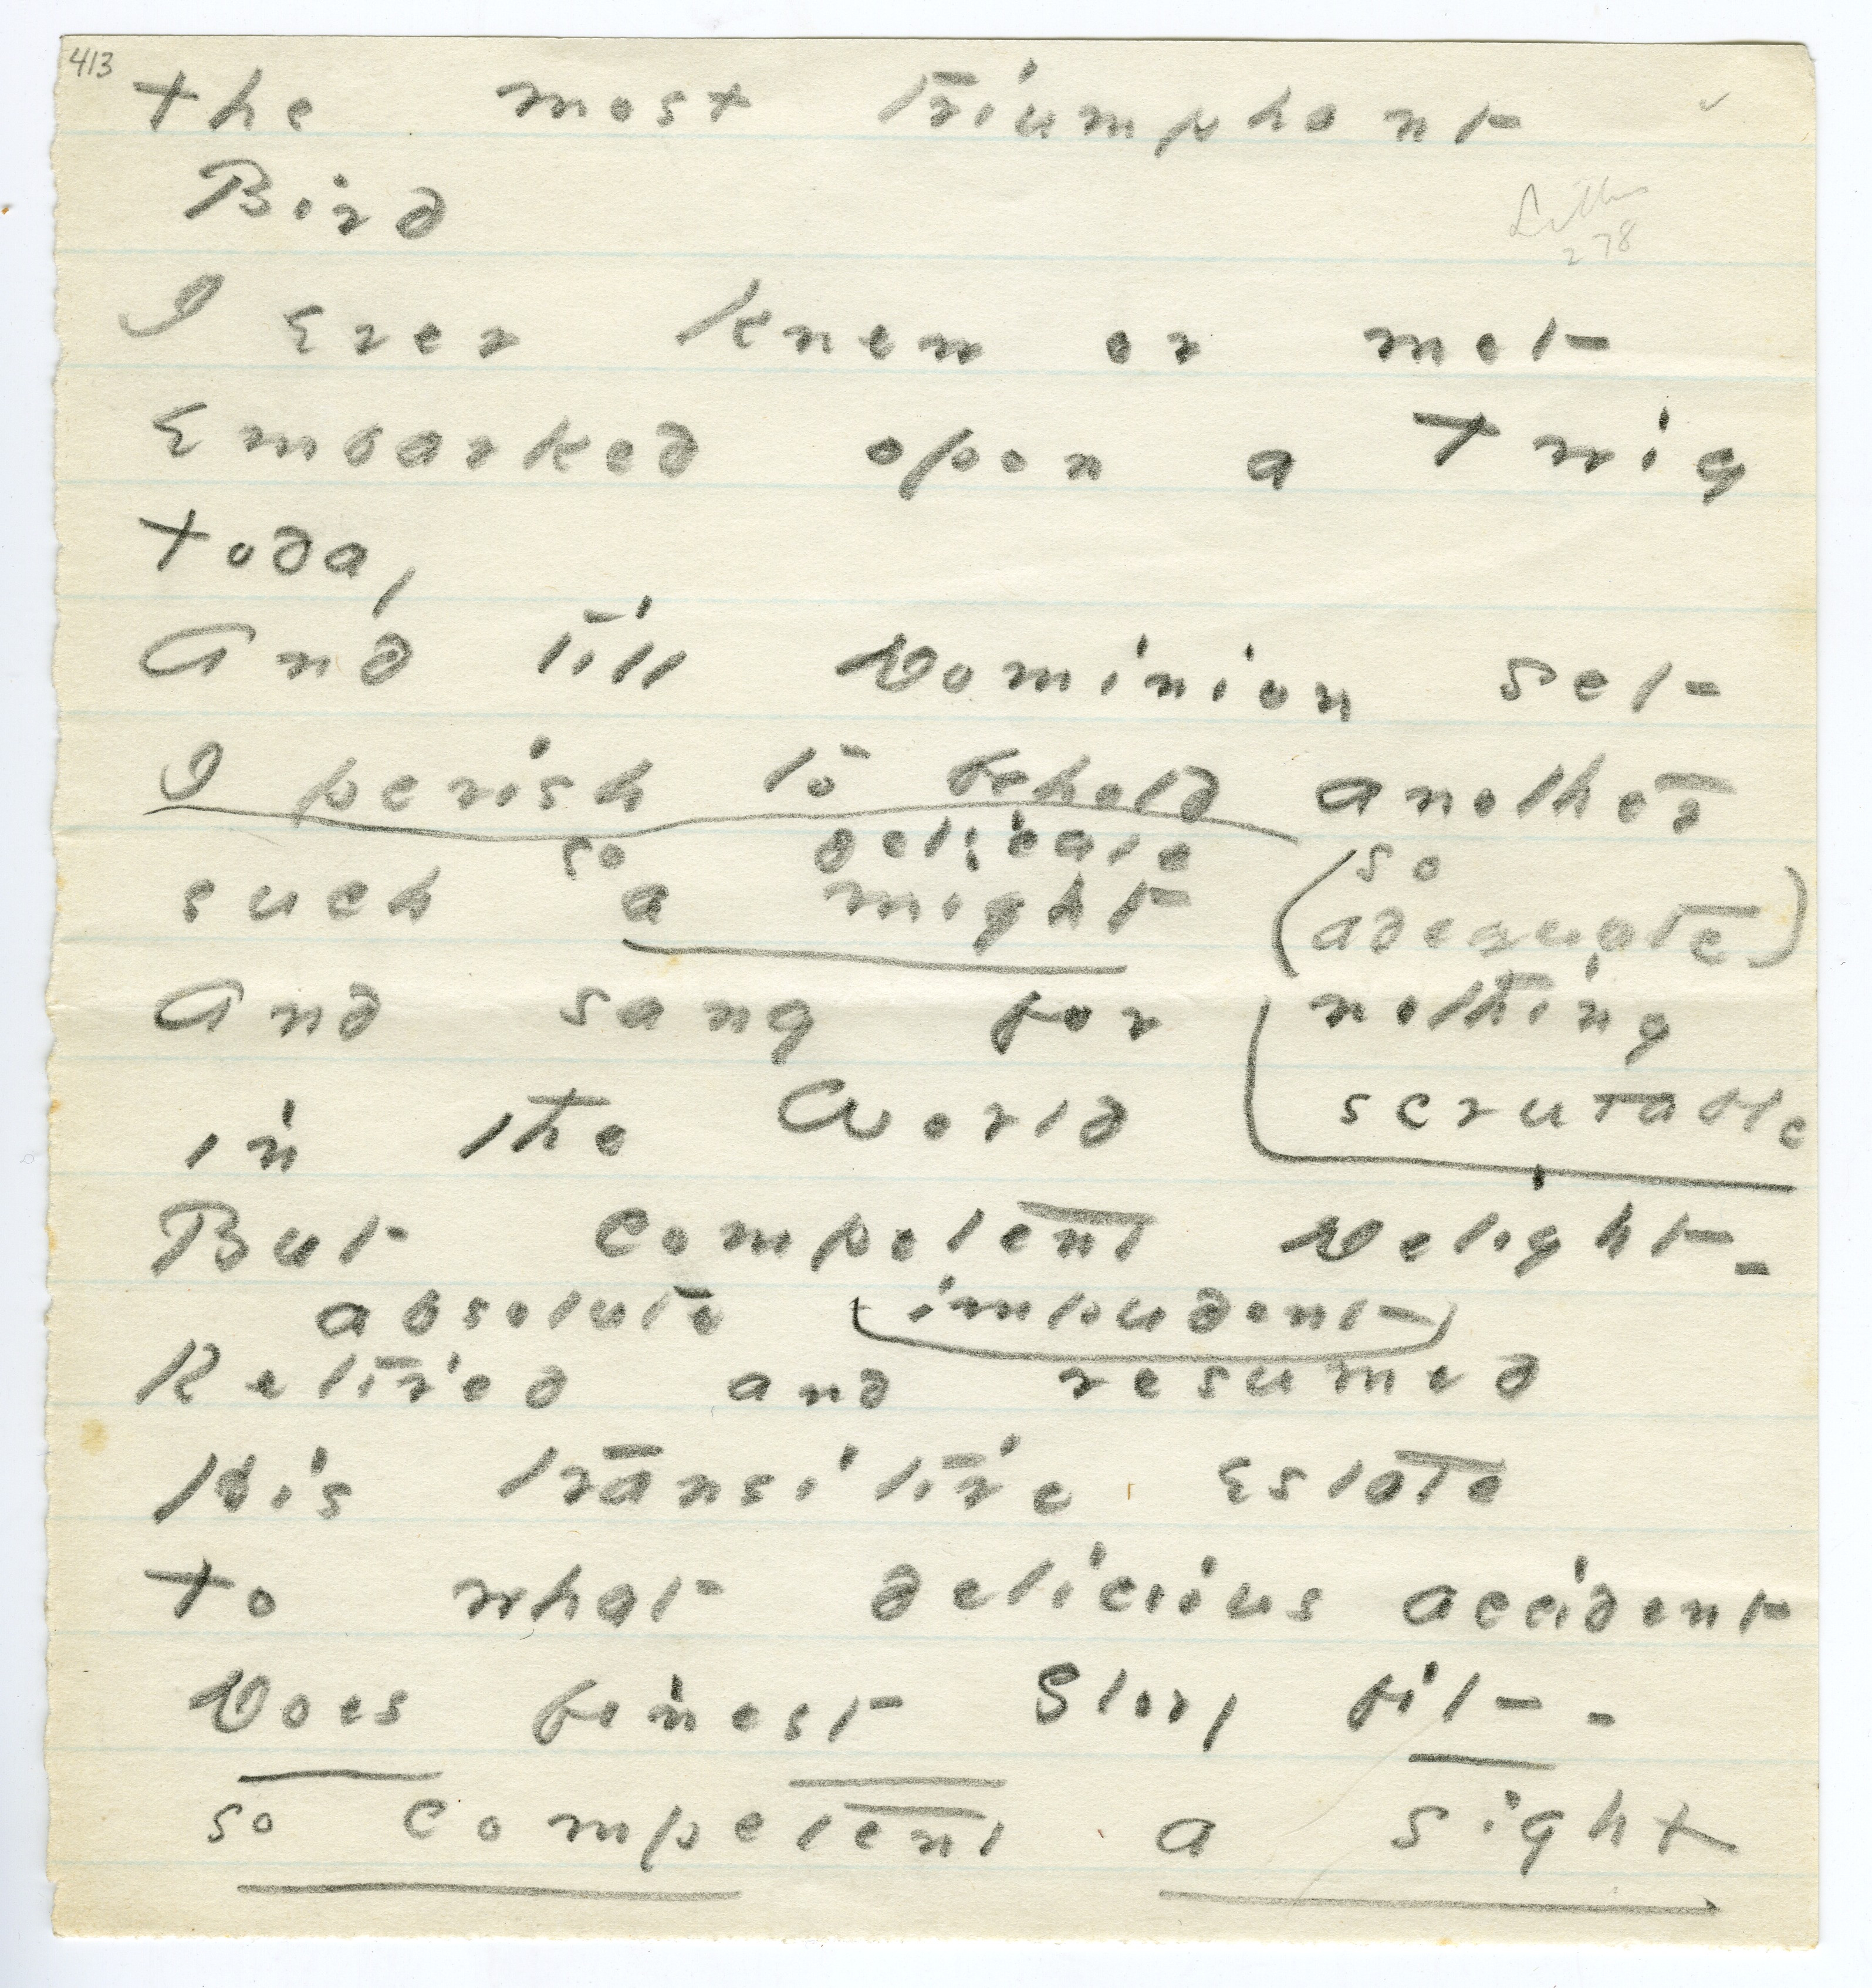 413
the most triumphant
Bird
Letters
278
I Ever knew or met
Embarked opon a twig
today
And till Dominion set
I perish to behold another
so delicate so
such a might (adequate)
And sang for nothing
scrutable
in the World
But competent Delight -
absolute (impudent)
Retired and resumed
his transitive Estate
to what delicious accident
Does finest Glory fit -
so competent a sight